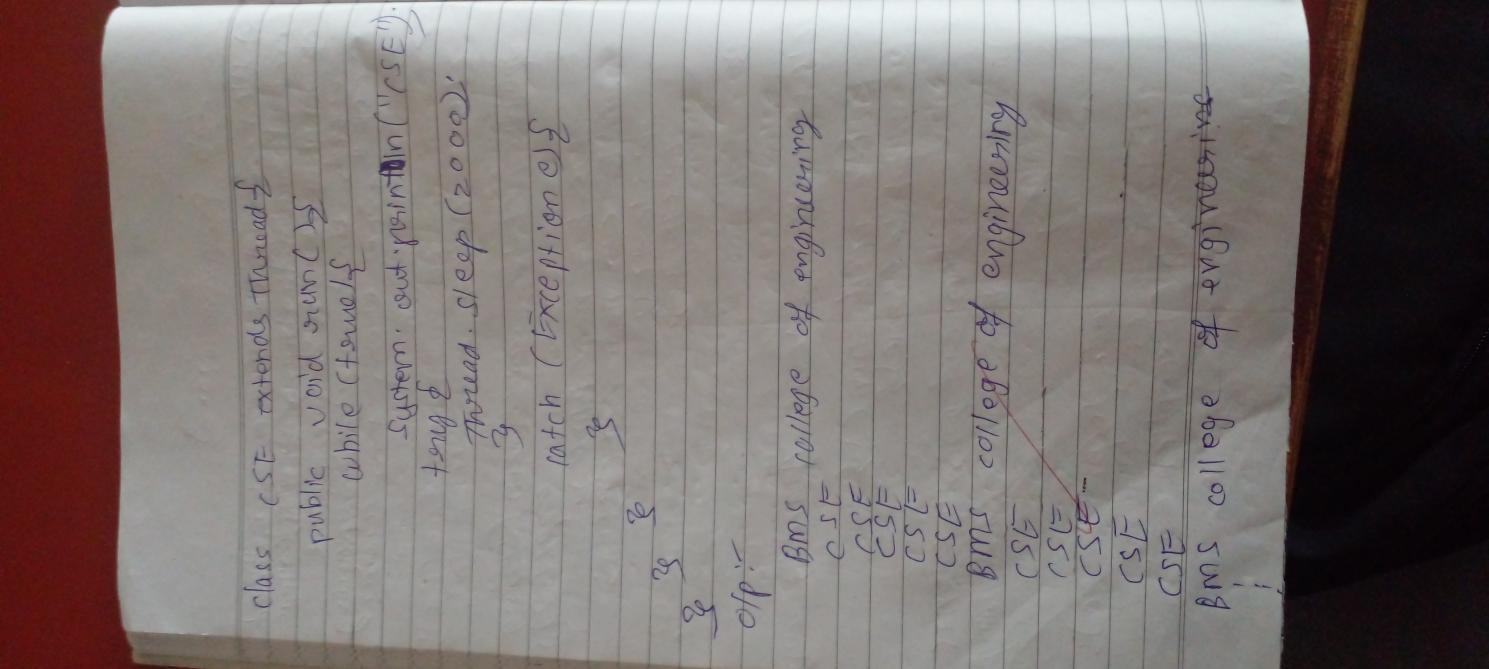 class CSE extends Thread{
public void run(){
while(true){
System.out.println("CSE");
try{
Thread.sleep(2000);
}
catch (Exception e){
}
}
}
}
O/P:-
BMS college of enginering
CSE
CSE
CSE
CSE
CSE
BMS college of engineering
CSE
CSE
CSE
CSE
CSE
BMS college of engineering